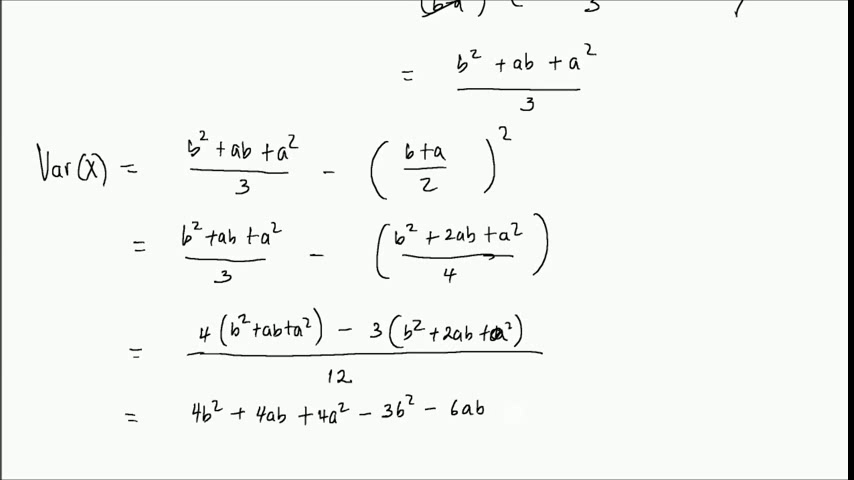 (b-a) ( 3 )
= (b² + ab + a²)/3
Var(X) = (b² + ab + a²)/3 - ((b+a)/2)²
= (b² + ab + a²)/3 - ((b² + 2ab + a²)/4)
= (4(b² + ab + a²) - 3(b² + 2ab + a²))/12
= 4b² + 4ab + 4a² - 3b² - 6ab